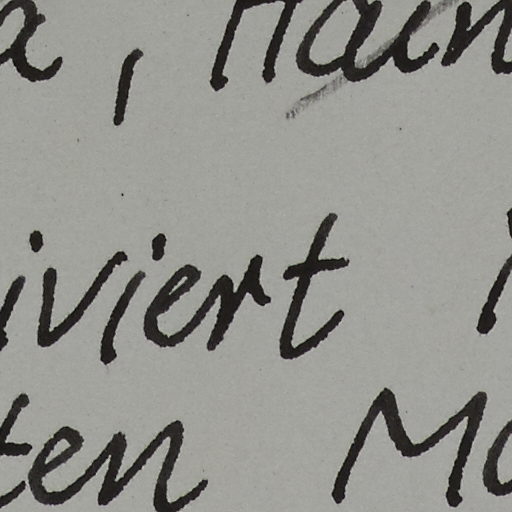 a, Hain
iviert
ten Mo